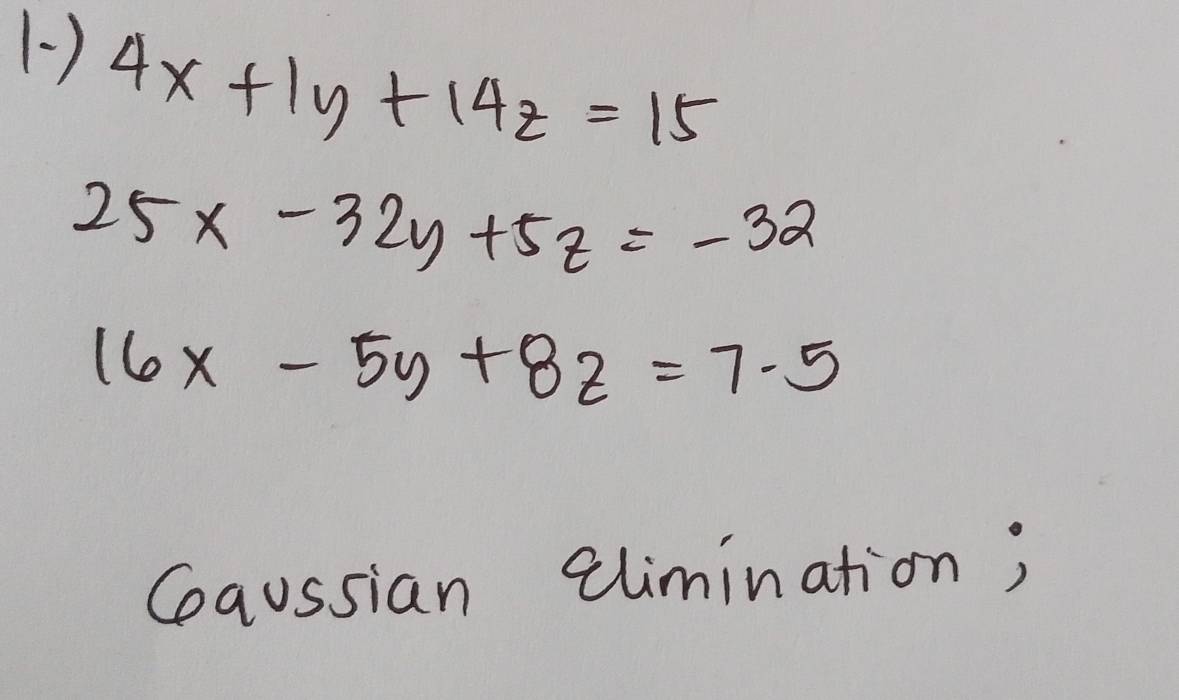 1-) 4x + 1y + 14z = 15
25x - 32y + 5z = - 32
16x - 5y + 8z = 7.5
Gaussian Elimination ;